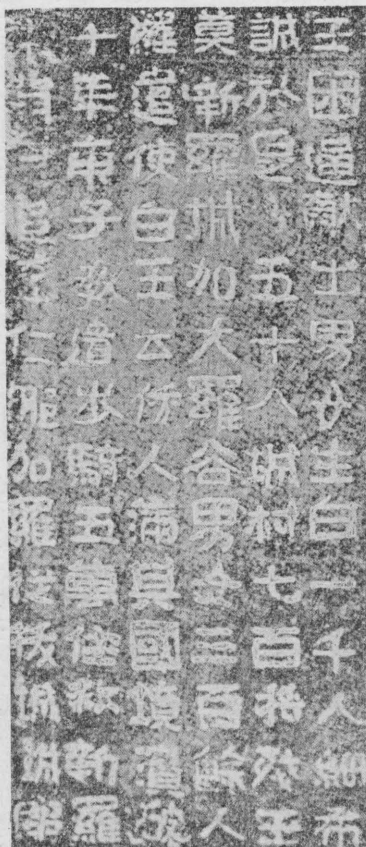 王困逼獻出男女生白一千人細布
誠於是五十八城村七百將殘王
莫新羅城加太羅谷男女三百餘人
羅遣使白王云倭人滿其國境潰破
十年庚子教遣步騎五萬往救新羅
背急追至任那加羅從拔城城